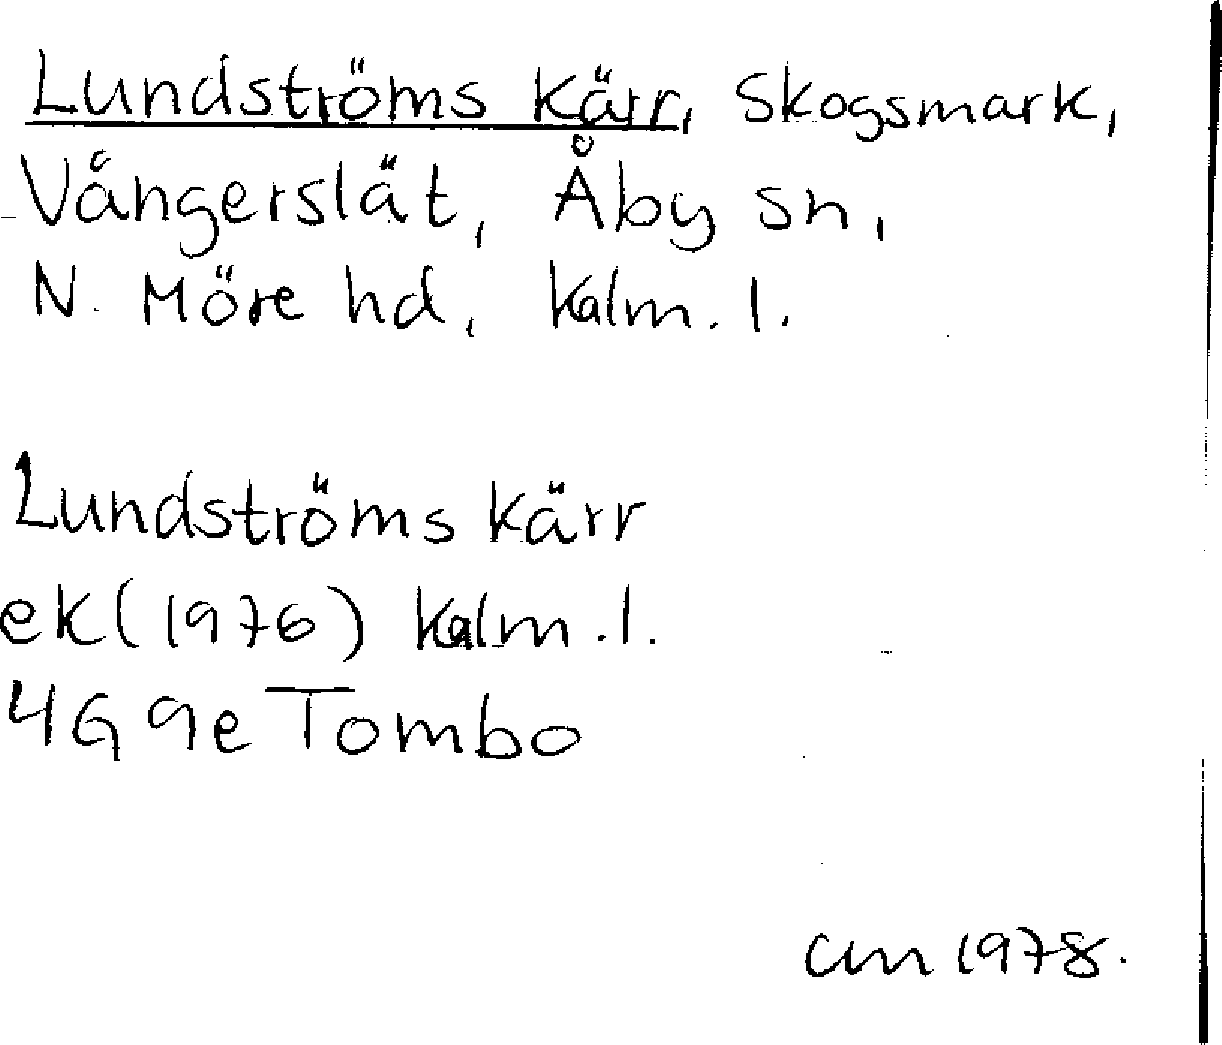 Lundströms Kärr, Skogsmark,
Vångerslät, Åby sn,
N. Möre hd, Kalm. l.
Lundströms Kärr
ek (1976) Kalm. l.
4G 9e Tombo
cm 1978.